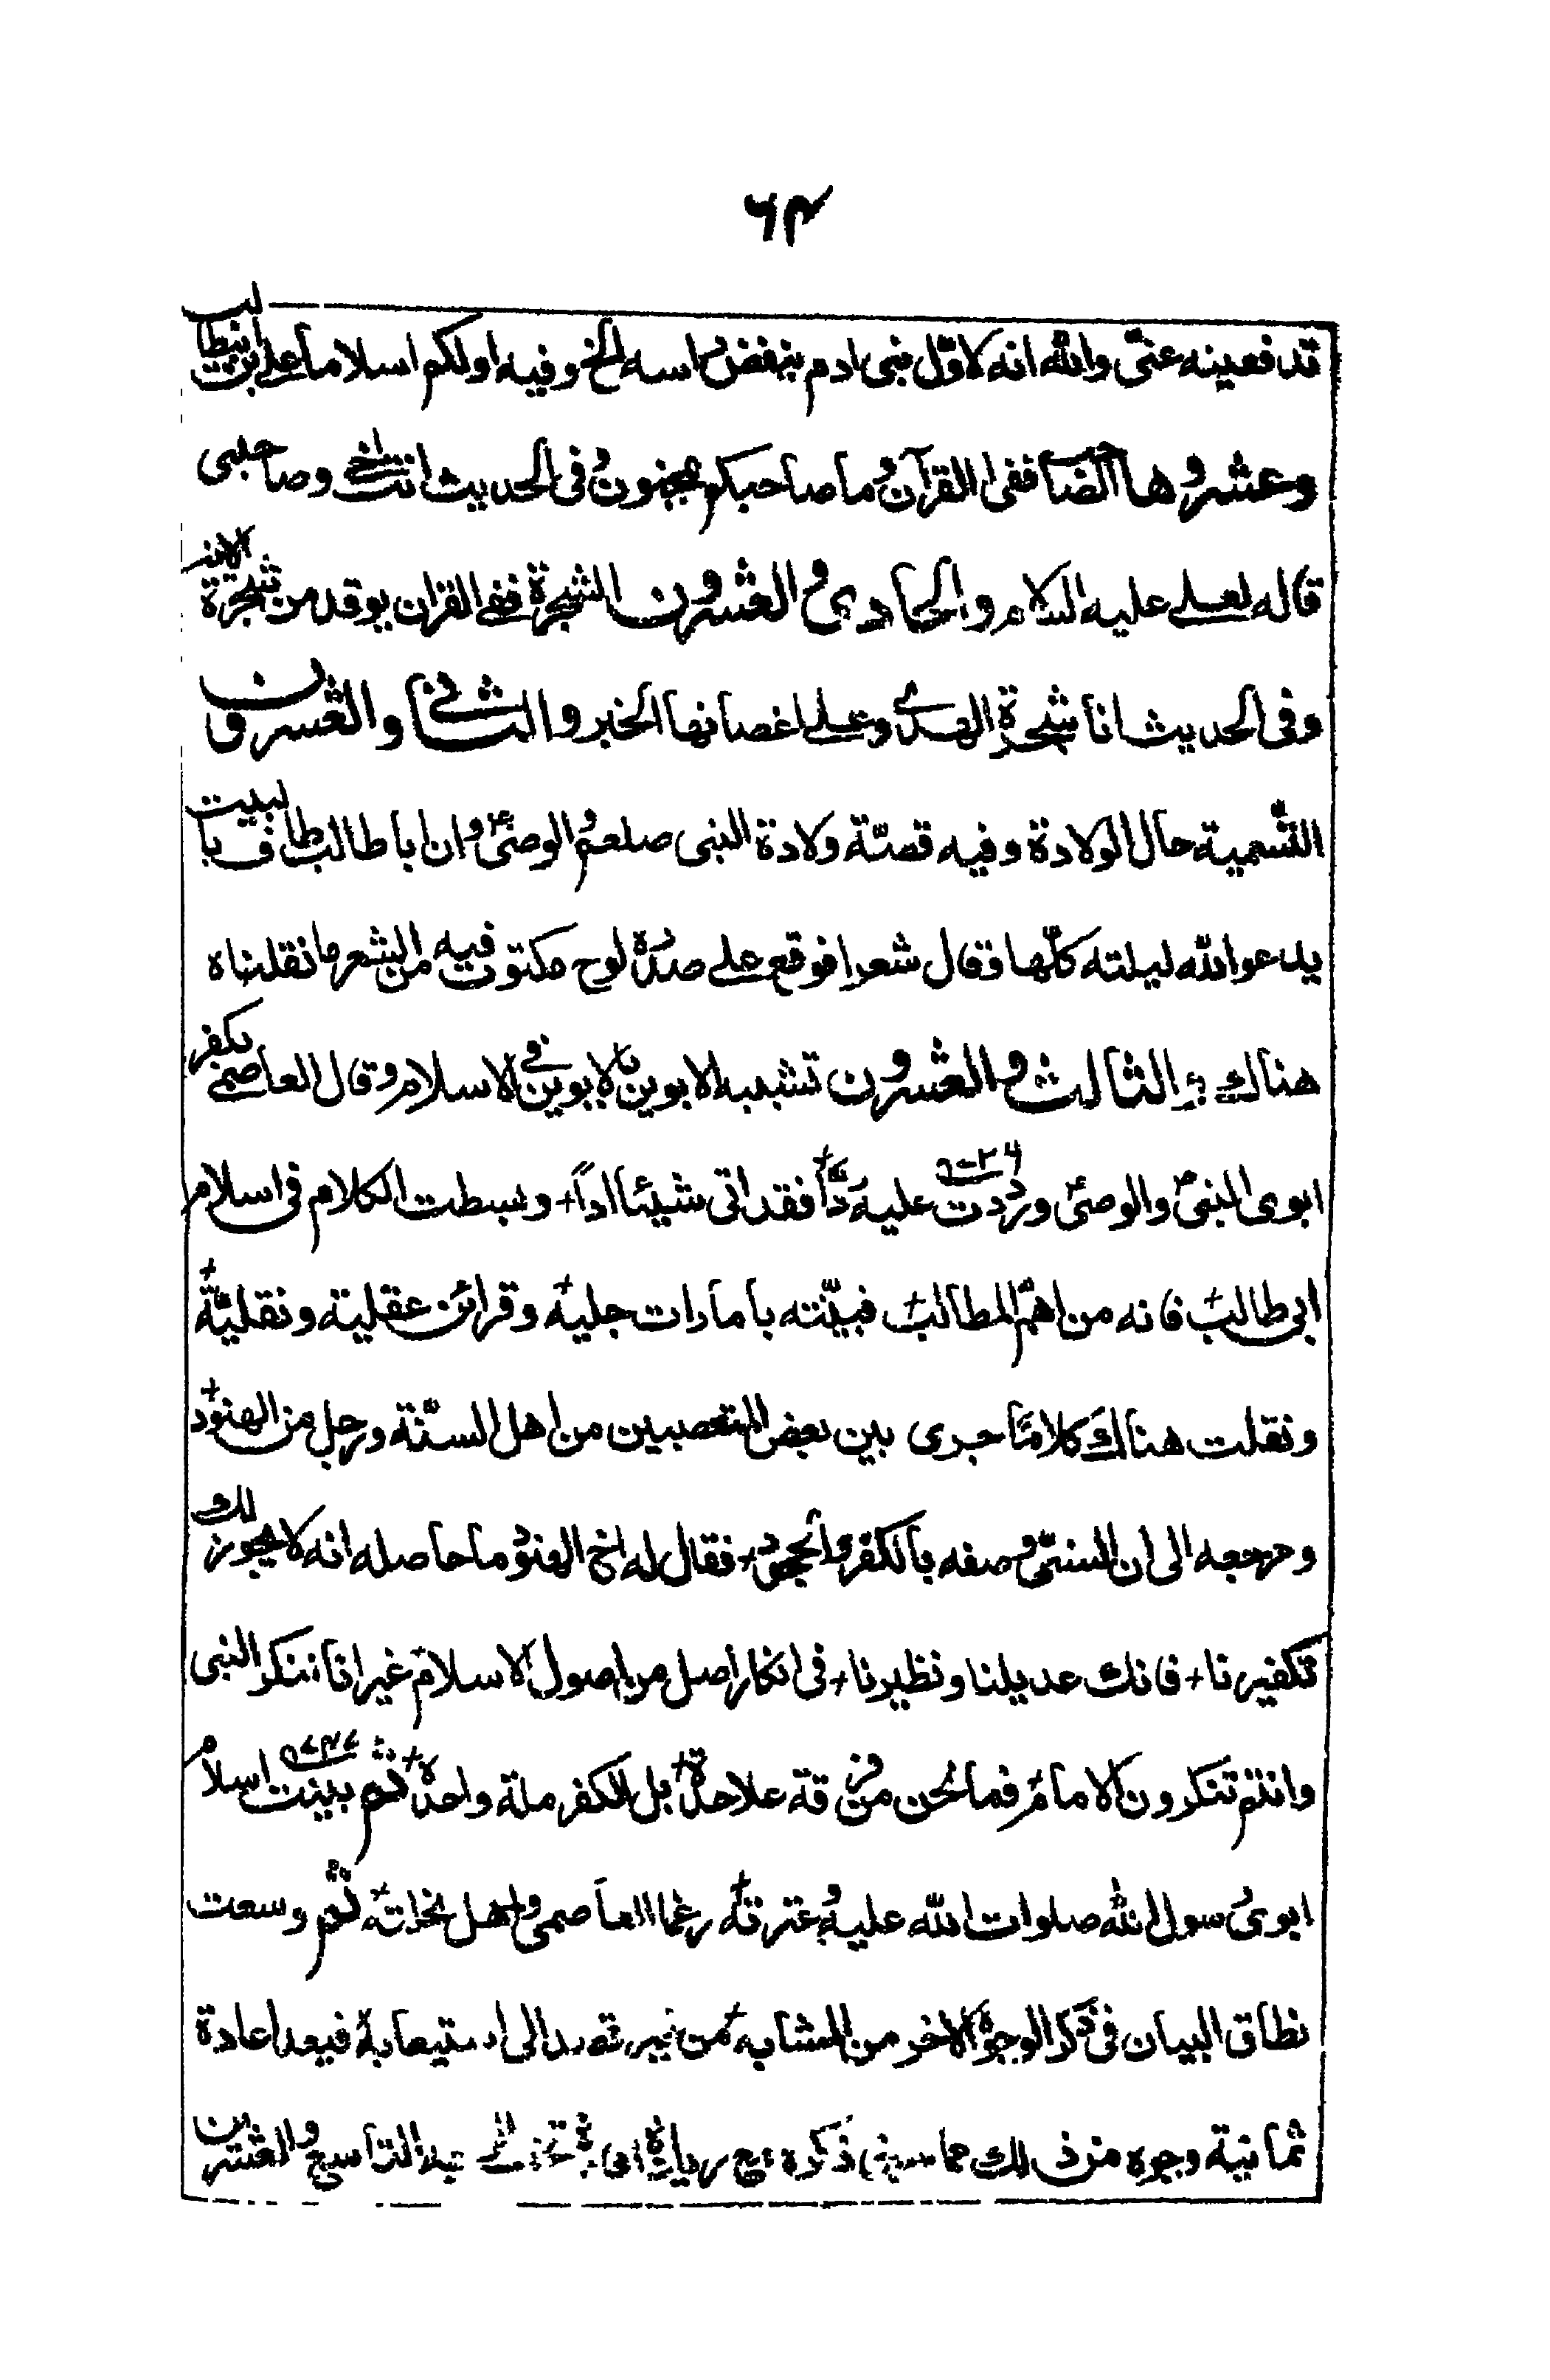 ٦٣
تدفعينه عنّي والله انه لاوّل بني ادم ينفض راسه الخ وفيه اولكم اسلاما علي بن ابيطالب
وعشروها الصاحب ففي القرآن وما صاحبكم بمجنون وفي الحديث انت اخي وصاحبي
قاله لعلي عليه السلام والحادي والعشرون الشجرة ففي القران يوقد من شجرة الاية
وفي الحديث انا شجرة الهدى وعلي اغصانها الخبر والثاني والعشرون
التسمية حال الولادة وفيه قصّة ولادة النبي صلعم والوصيّ وان ابا طالب طاف بالبيت
يدعو الله ليلته كلّها وقال شعرا فوقع على صدره لوح مكتوب فيه من الشعر ما نقلناه
هناك ؛ الثالث والعشرون تشبيه الابوين بالابوين في الاسلام وقال العاصمي بكفر
ابوي النبيّ والوصيّ ورددت عليه ردّا فقد اتى شيئا ادّاً + وبسطت الكلام في اسلام
ابي طالب فانه من اهمّ المطالب فبيّنته بامارات جلية وقرائن عقلية ونقليّة
ونقلت هناك كلامًا جرى بين بعض المتعصبين من اهل السنّة ورجل من الهنود
ومرجعه الى ان السنّي وصفه بالكفر والجحود + فقال له اخ الهنود ما حاصله انه لا يجوز لك
تكفيرنا + فانك عديلنا ونظيرنا + في انكار اصل من اصول الاسلام غير انا ننكر النبي
وانتم تنكرون الامام فما نحن من فرقة علاحدة بل الكفر ملة واحدة ثم بينت اسلام
ابوي رسول الله صلوات الله عليه وعترته رغما العاصمي واهل نحلته ثم وسعت
نطاق البيان في ذكر الوجوه الاخر من المشابه من غير قصد الى استيعابه فبعد اعادة
ثمانية وجوه من ذلك مما سبق ذكره مع زيادة التاسع والعشرين